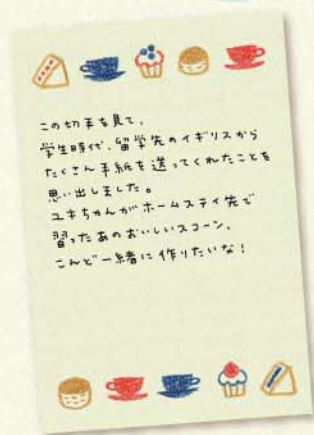 この切手を見て、
学生時代、留学先のイギリスから
たくさん手紙を送ってくれたことを
思い出しました。
ユキちゃんがホームステイ先で
習ったあのおいしいスコーン、
こんど一緒に作りたいな！